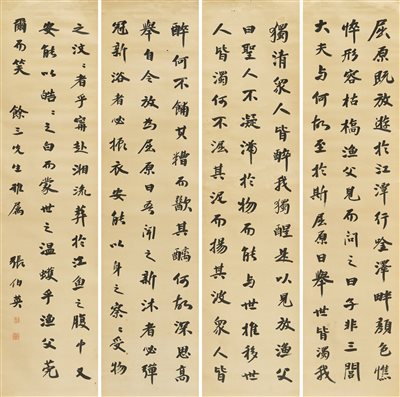 屈原既放遊於江潭行唫澤畔顏色憔
悴形容枯槁漁父見而問之曰子非三閭
大夫与何故至於斯屈原曰舉世皆濁我
獨清眾人皆醉我獨醒是以見放漁父
曰聖人不凝滯於物而能与世推移世
人皆濁何不淈其泥而揚其波眾人皆
醉何不餔其糟而歠其醨何故深思高
舉自令放為屈原曰吾聞之新沐者必彈
冠新浴者必振衣安能以身之察々受物
之汶々者乎寧赴湘流葬於江魚之腹中又
安能以皓々之白而蒙世之温蠖乎漁父莞
爾而笑 餘三先生雅属 張伯英